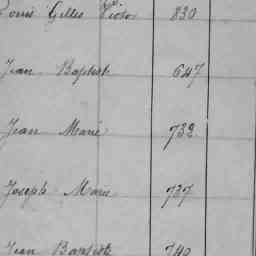 Louis Gilles Victor 830
Jean Baptiste 647
Jean Marie 732
Joseph Marie 737
Jean Baptiste 740